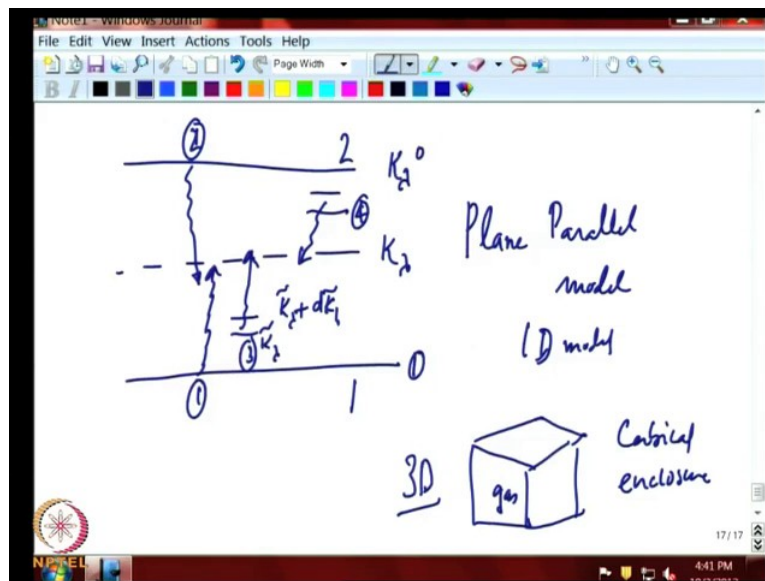 Note1 - Windows Journal
File Edit View Insert Actions Tools Help
Page Width
B I
② 2 Kλ°
④
Kλ
K̃λ + dK̃λ
③ K̃λ
① 1 0
Plane Parallel
model
1D model
3D gas Cubical
enclosure
17/17
NPTEL
4:41 PM